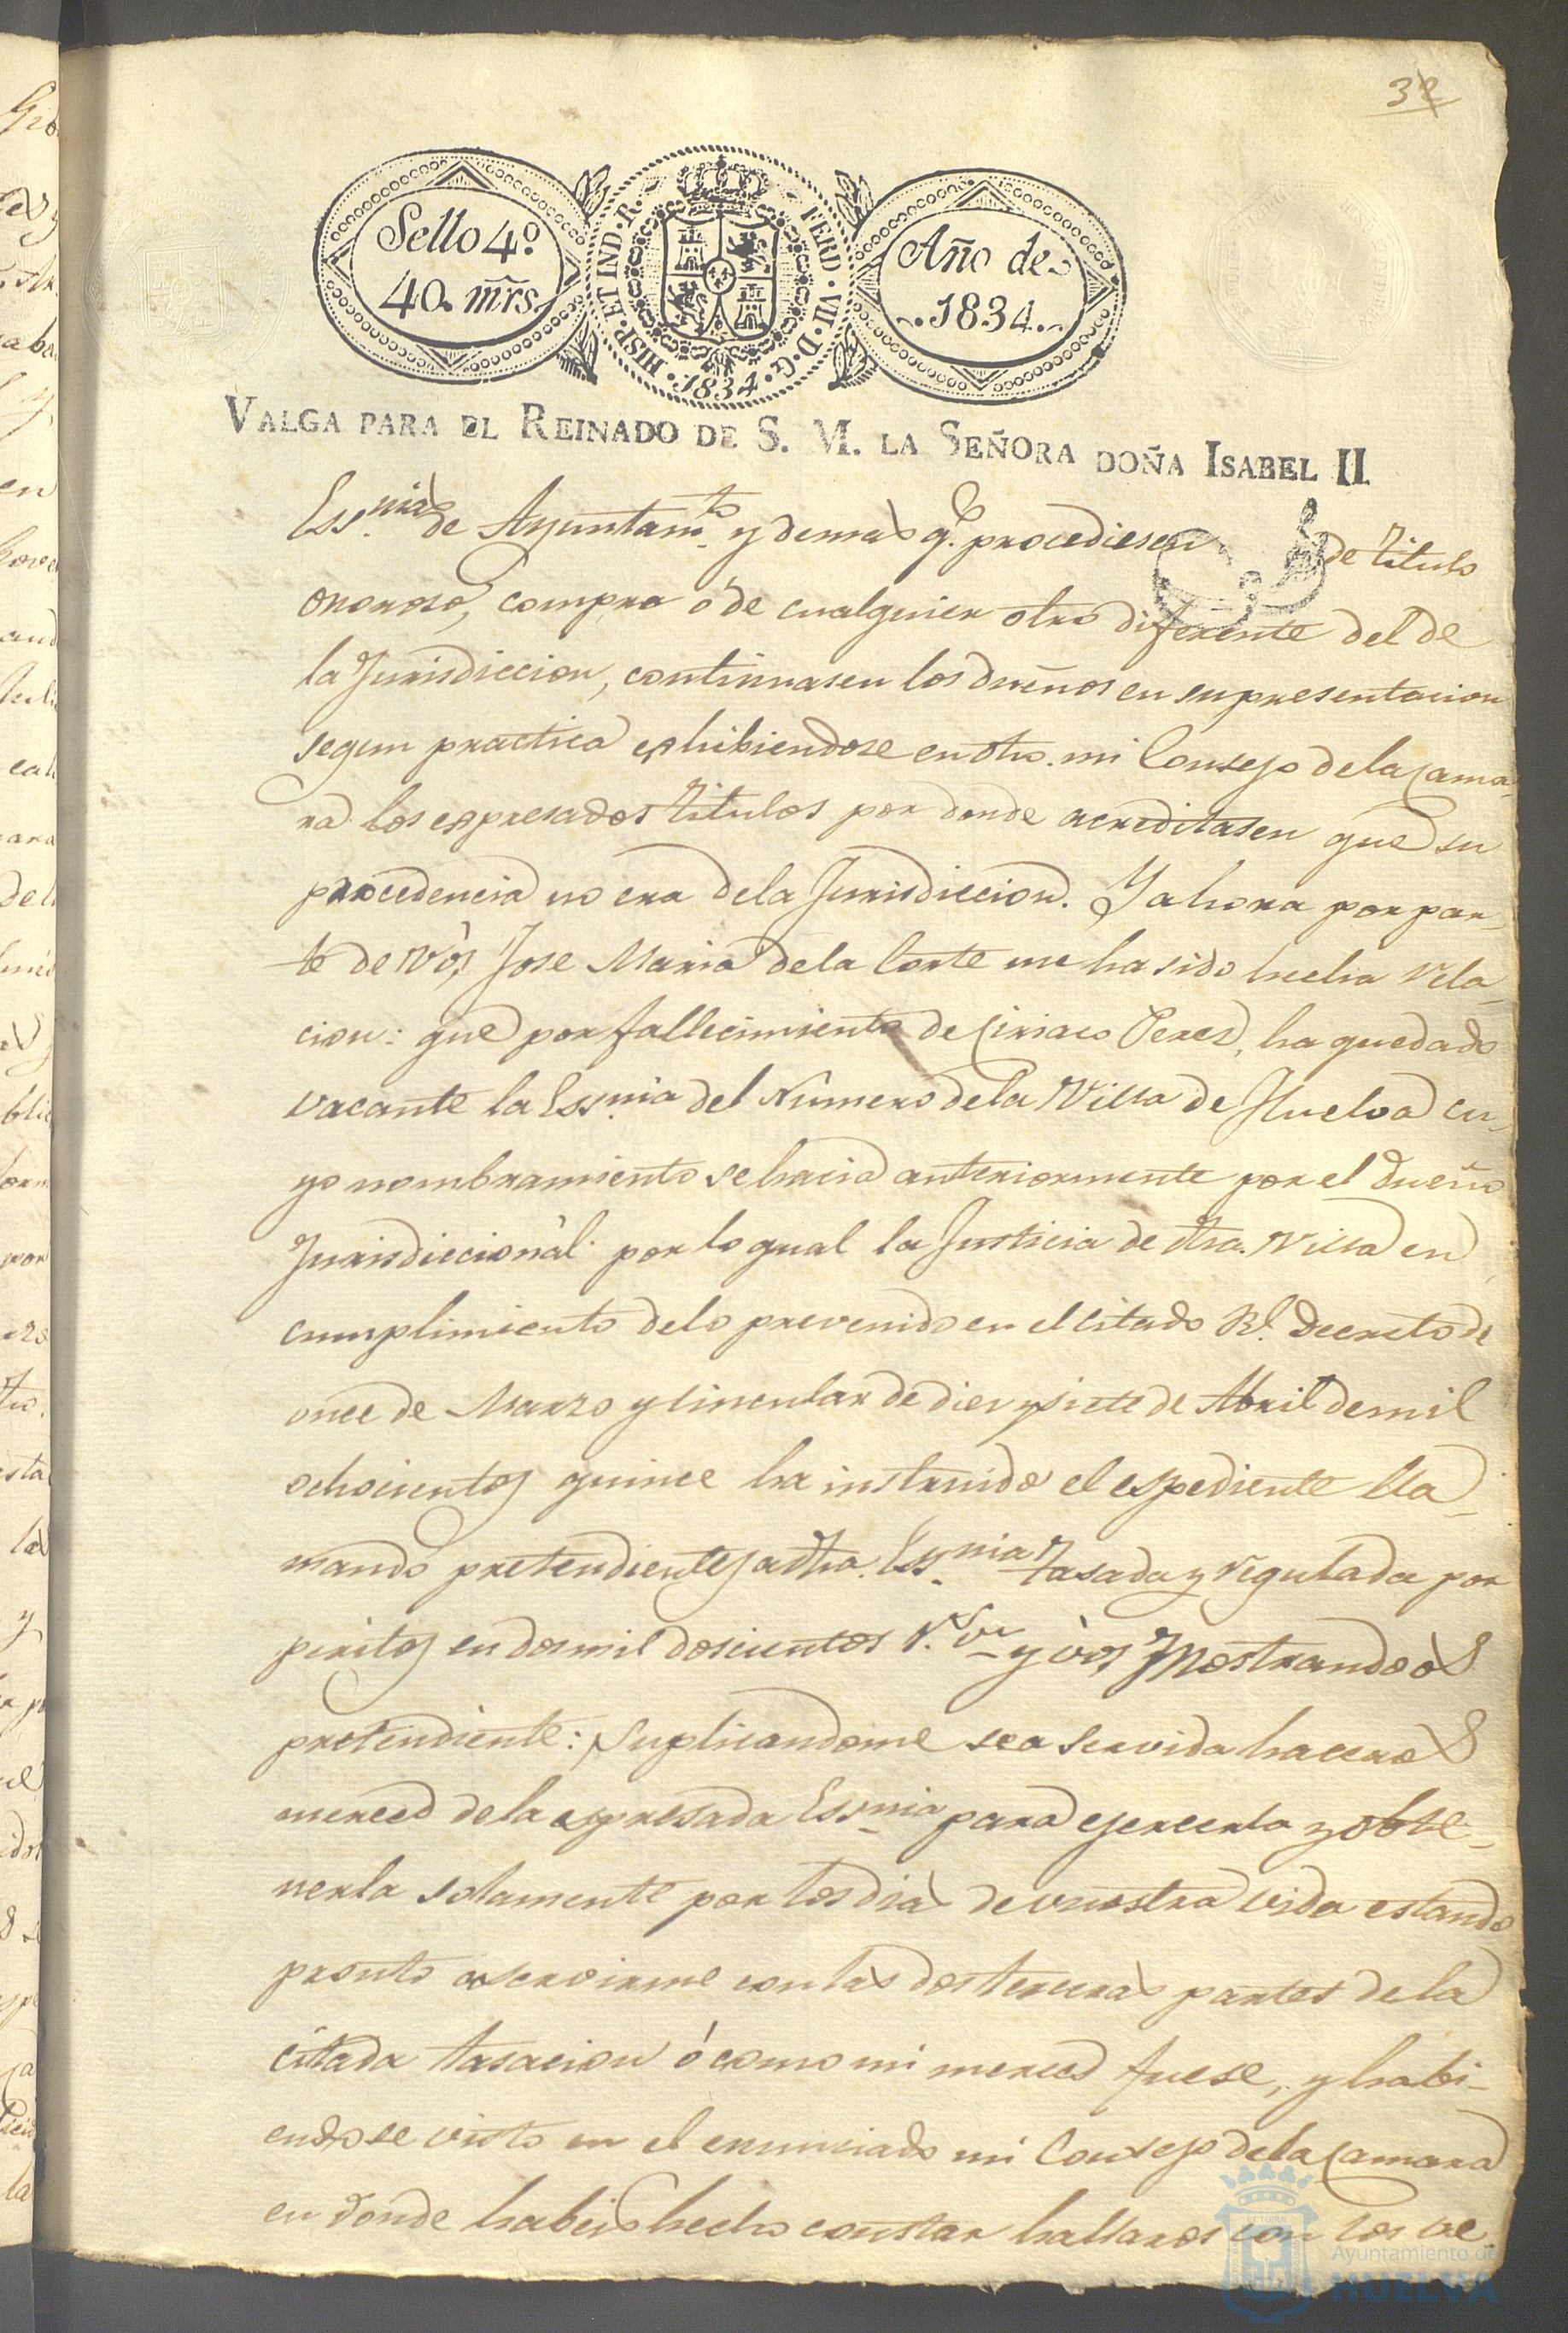 32
Sello 4.º
40. mrs.
HISP. ET IND. R.
FERD. VII. D. G.
1834.
Año de
1834.
VALGA PARA EL REINADO DE S. M. LA SEÑORA DOÑA ISABEL II
Ess.nias de Ayuntam.to y demas q.e procediesen de titulo
oneroso, compra ó de cualquier otro diferente del de
la Jurisdiccion, continuasen los dueños en su presentacion
segun practica exhibiendose en dho. mi Consejo de la Cama-
ra los expresados titulos por donde acreditasen que su
procedencia no era de la Jurisdiccion. Y ahora por par-
te de vòs Jose Maria de la Corte me ha sido hecha rela-
cion: que por fallecimiento de Ciriaco Perez, ha quedado
vacante la Ess.nia del Número de la Villa de Huelva cu-
yo nombramiento se hacia anteriormente por el dueño
Jurisdiccional: por lo qual la Justicia de dha. Villa en
cumplimiento de lo prevenido en el citado Rl. Decreto de
once de Marzo y Circular de diez y siete de Abril de mil
ochocientos quince ha instruido el espediente lla-
mando pretendientes a dha. Ess.nia tasada y regulada por
peritos en dos mil doscientos r.s v.n y vos mostrandoos
pretendiente: Suplicandome sea servida haceros
merced de la espresada Ess.nia para ejercerla y obte-
nerla solamente por los dias de vuestra vida estando
pronto a servirme con las dos terceras partes de la
citada tasacion ó como mi merced fuese, y habi-
endose visto en el enunciado mi Consejo de la Camara
en donde habeis hecho constar hallaros con los re
Ayuntamiento de
HUELVA